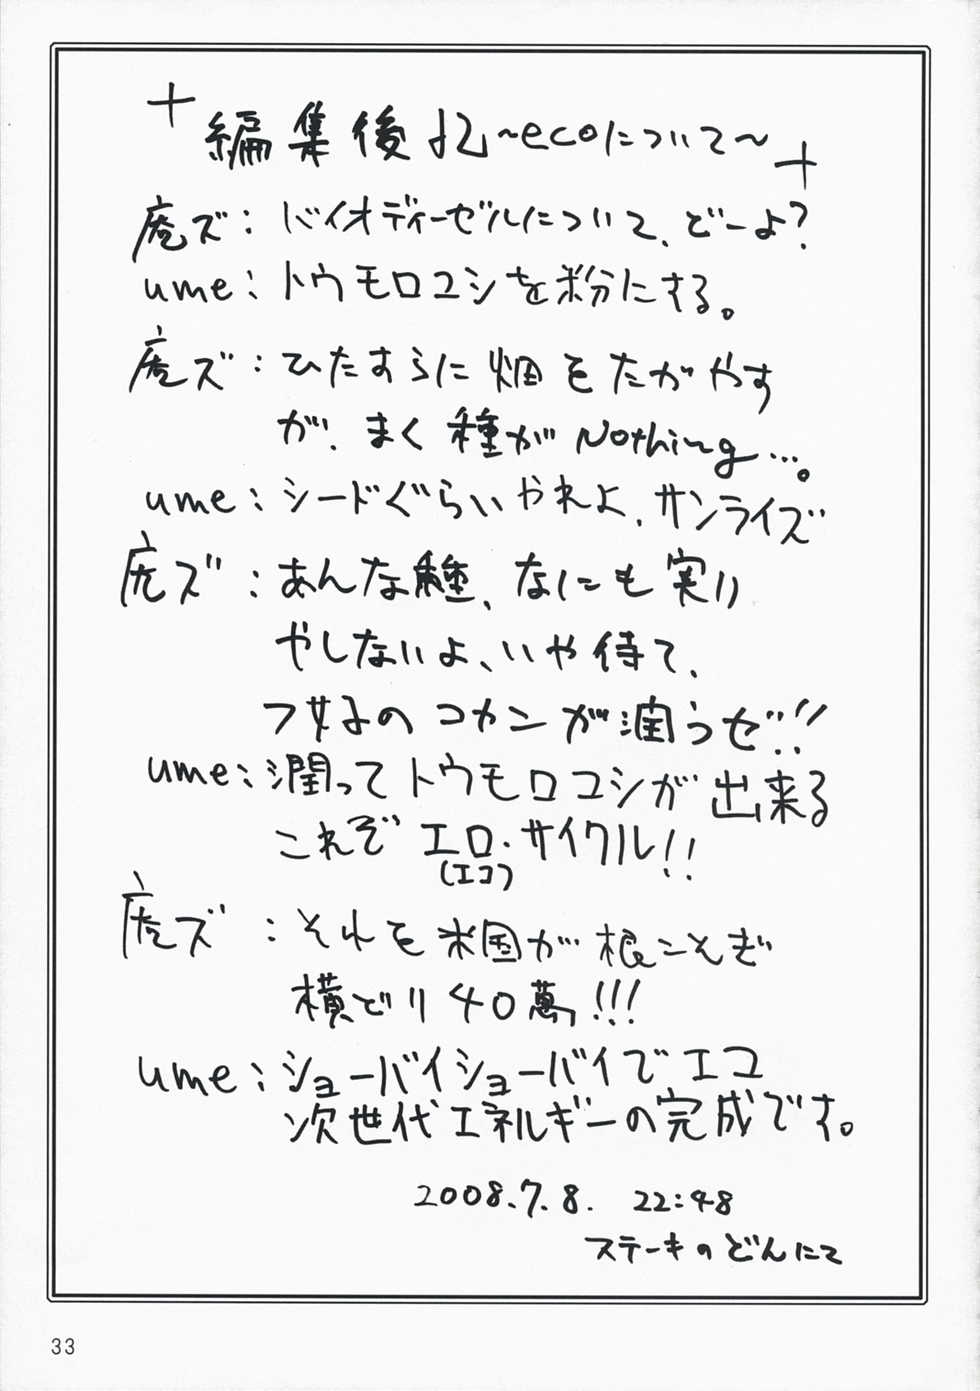 編集後記~ecoについて~
庵ズ:バイオディーゼルについて、どーよ?
ume:トウモロコシを粉にする。
庵ズ:ひたすらに畑をたがやす
が、まく種がNothing…。
ume:シードぐらいやれよ、サンライズ
庵ズ:あんな種、なにも実り
やしないよ、いや待て、
フ女子のコカンが潤うぜ!!
ume:潤ってトウモロコシが出来る
これぞエロ・サイクル!!
(エコ)
庵ズ:それを米国が根こそぎ
横どり40萬!!!
ume:ショーバイショーバイでエコ
次世代エネルギーの完成です。
2008.7.8. 22:48
ステーキのどんにて
33